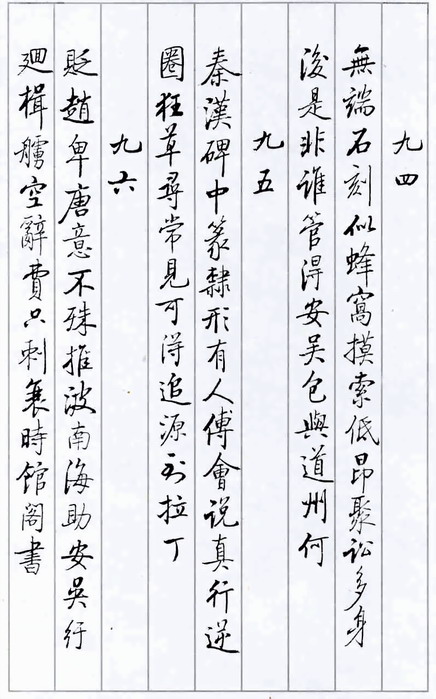 九四
無端石刻似蜂窩摸索低昂聚訟多身
後是非誰管得安吴包與道州何
九五
秦漢碑中篆隸形有人傅會说真行逆
圈狂草尋常見可得追源到拉丁
九六
貶趙卑唐意不殊推波南海助安吳紆
廻楫艣空辭費只剩衰時館閣書